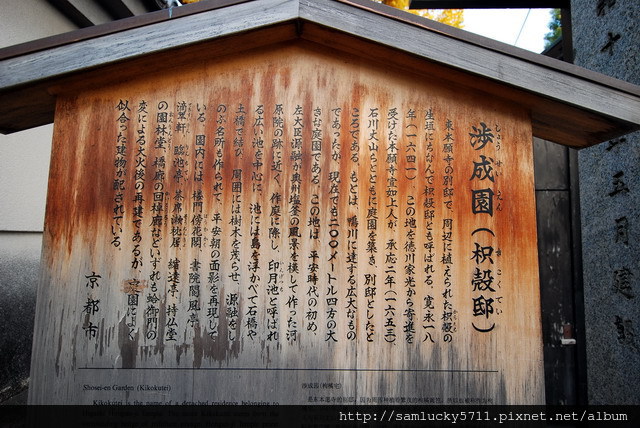 渉成園（枳殻邸）
しょうせいえん
おこくてい
東本願寺の別邸で、周辺に植えられた枳殻の
生垣にちなんで枳殻邸とも呼ばれる。寛永一八
年（一六四一）、この地を徳川家光から寄進を
受けた本願寺宣如上人が、承応二年（一六五三）
石川丈山らとともに庭園を築き、別邸としたと
ころである。もとは、鴨川に達する広大なもの
であったが、現在でも二〇〇メートル四方の大
きな庭園である。この地は、平安時代の初め、
左大臣源融が奥州塩釜の風景を模して作った河
原院の跡に近く、作庭に際し、印月池と呼ばれ
る広い池を中心に、池には島を浮かべて石橋や
土橋で結び、周囲には樹木を茂らせ、源融をし
のぶ名所も作られて、平安朝の面影を再現して
いる。園内には、楼門傍花閣、書院閬風亭、
滴翠軒、臨池亭、茶席漱枕居、縮遠亭、持仏堂
の園林堂、橋廊の回棹廊などいずれも蛤御門の
変による大火後の再建であるが、 園によく
似合った建物が配されている。
京都市
Shosei-en Garden (Kikokutei)
Kikokutei is the name of a detached residence belonging to
涉成园（枸橘宅）
http://samlucky5711.pixnet.net/album